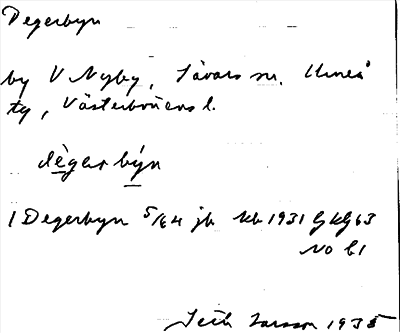 Degerbyn
by V Nyby, Sävars sn. Umeå
ty, Västerbottens l.
dègarbýn
1 Degerbyn 5/64 jb kb 1931 GkG 63
NO 61
Larsson 1935